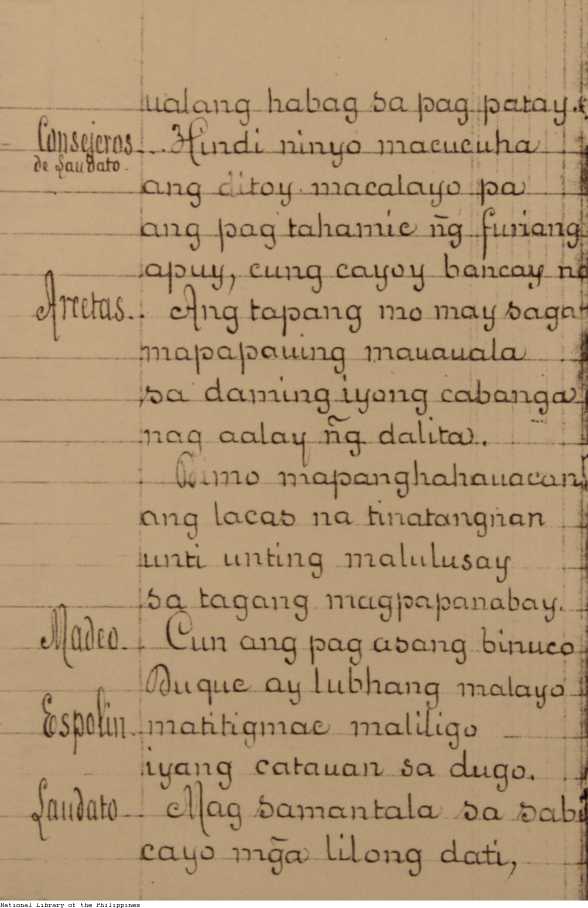 ualang habag sa pag patay.
Consejeros de Laudato. Hindi ninyo macucuha
ang ditoy macalayo pa
ang pag tahamic ñg furiang
apuy, cung cayoy bancay na
Arcetas. Ang tapang mo may
mapapauing mauauala
sa daming iyong cabanga
nag aalay ñg dalita.
mo
ang lacas na tinatangnan
unti unting malulusay
sa tagang magpapanabay.
Madeo. Cun ang pag asang binuco
Duque ay lubhang malayo
Espolin. matitigmac maliligo
iyang catauan sa dugo.
Laudato. Mag samantala sa
cayo mg̃a lilong dati,
National Library of the Philippines